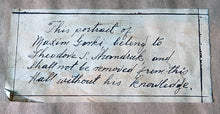 This portrait of
Maxim Gorki, belong to
Theodore S. and
shall not be removed from this
Hall without his knowledge.